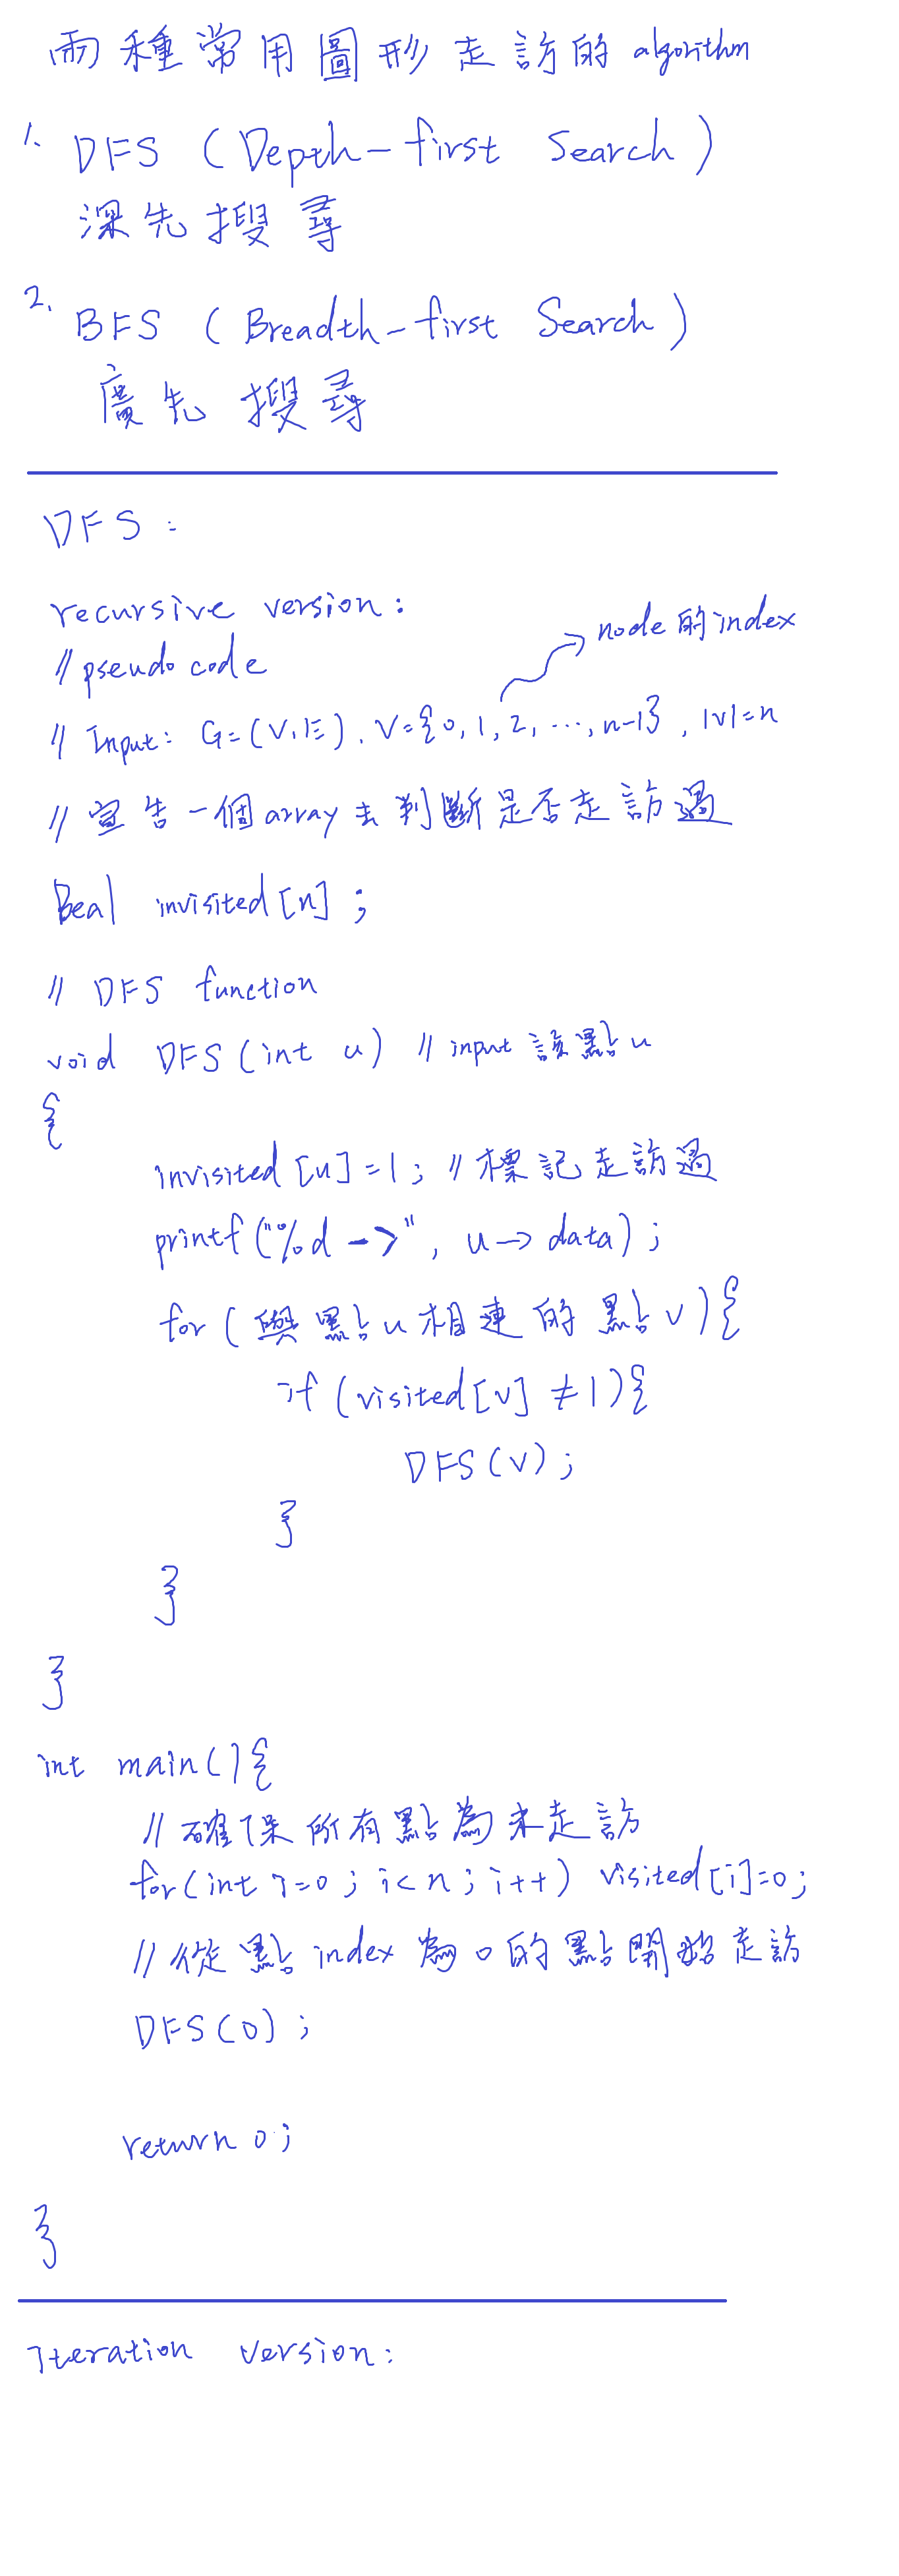 兩種常用圖形走訪的 algorithm
1. DFS (Depth-first Search)
深先搜尋
2. BFS (Breadth-first Search)
廣先搜尋
DFS:
recursive version:
// pseudo code
node的index
// Input: G=(V,E). V={0,1,2,...,n-1}, |V|=n
// 宣告一個array去判斷是否走訪過
Beal invisited[n];
// DFS function
void DFS(int u) // input 該點u
{
invisited[u]=1; // 標記走訪過
printf("%d ->", u->data);
for(與點u相連的點v){
if(visited[v]≠1){
DFS(v);
}
}
}
int main(){
// 確保所有點為未走訪
for(int i=0; i<n; i++) visited[i]=0;
// 從點index為0的點開始走訪
DFS(0);
return 0;
}
Iteration Version: